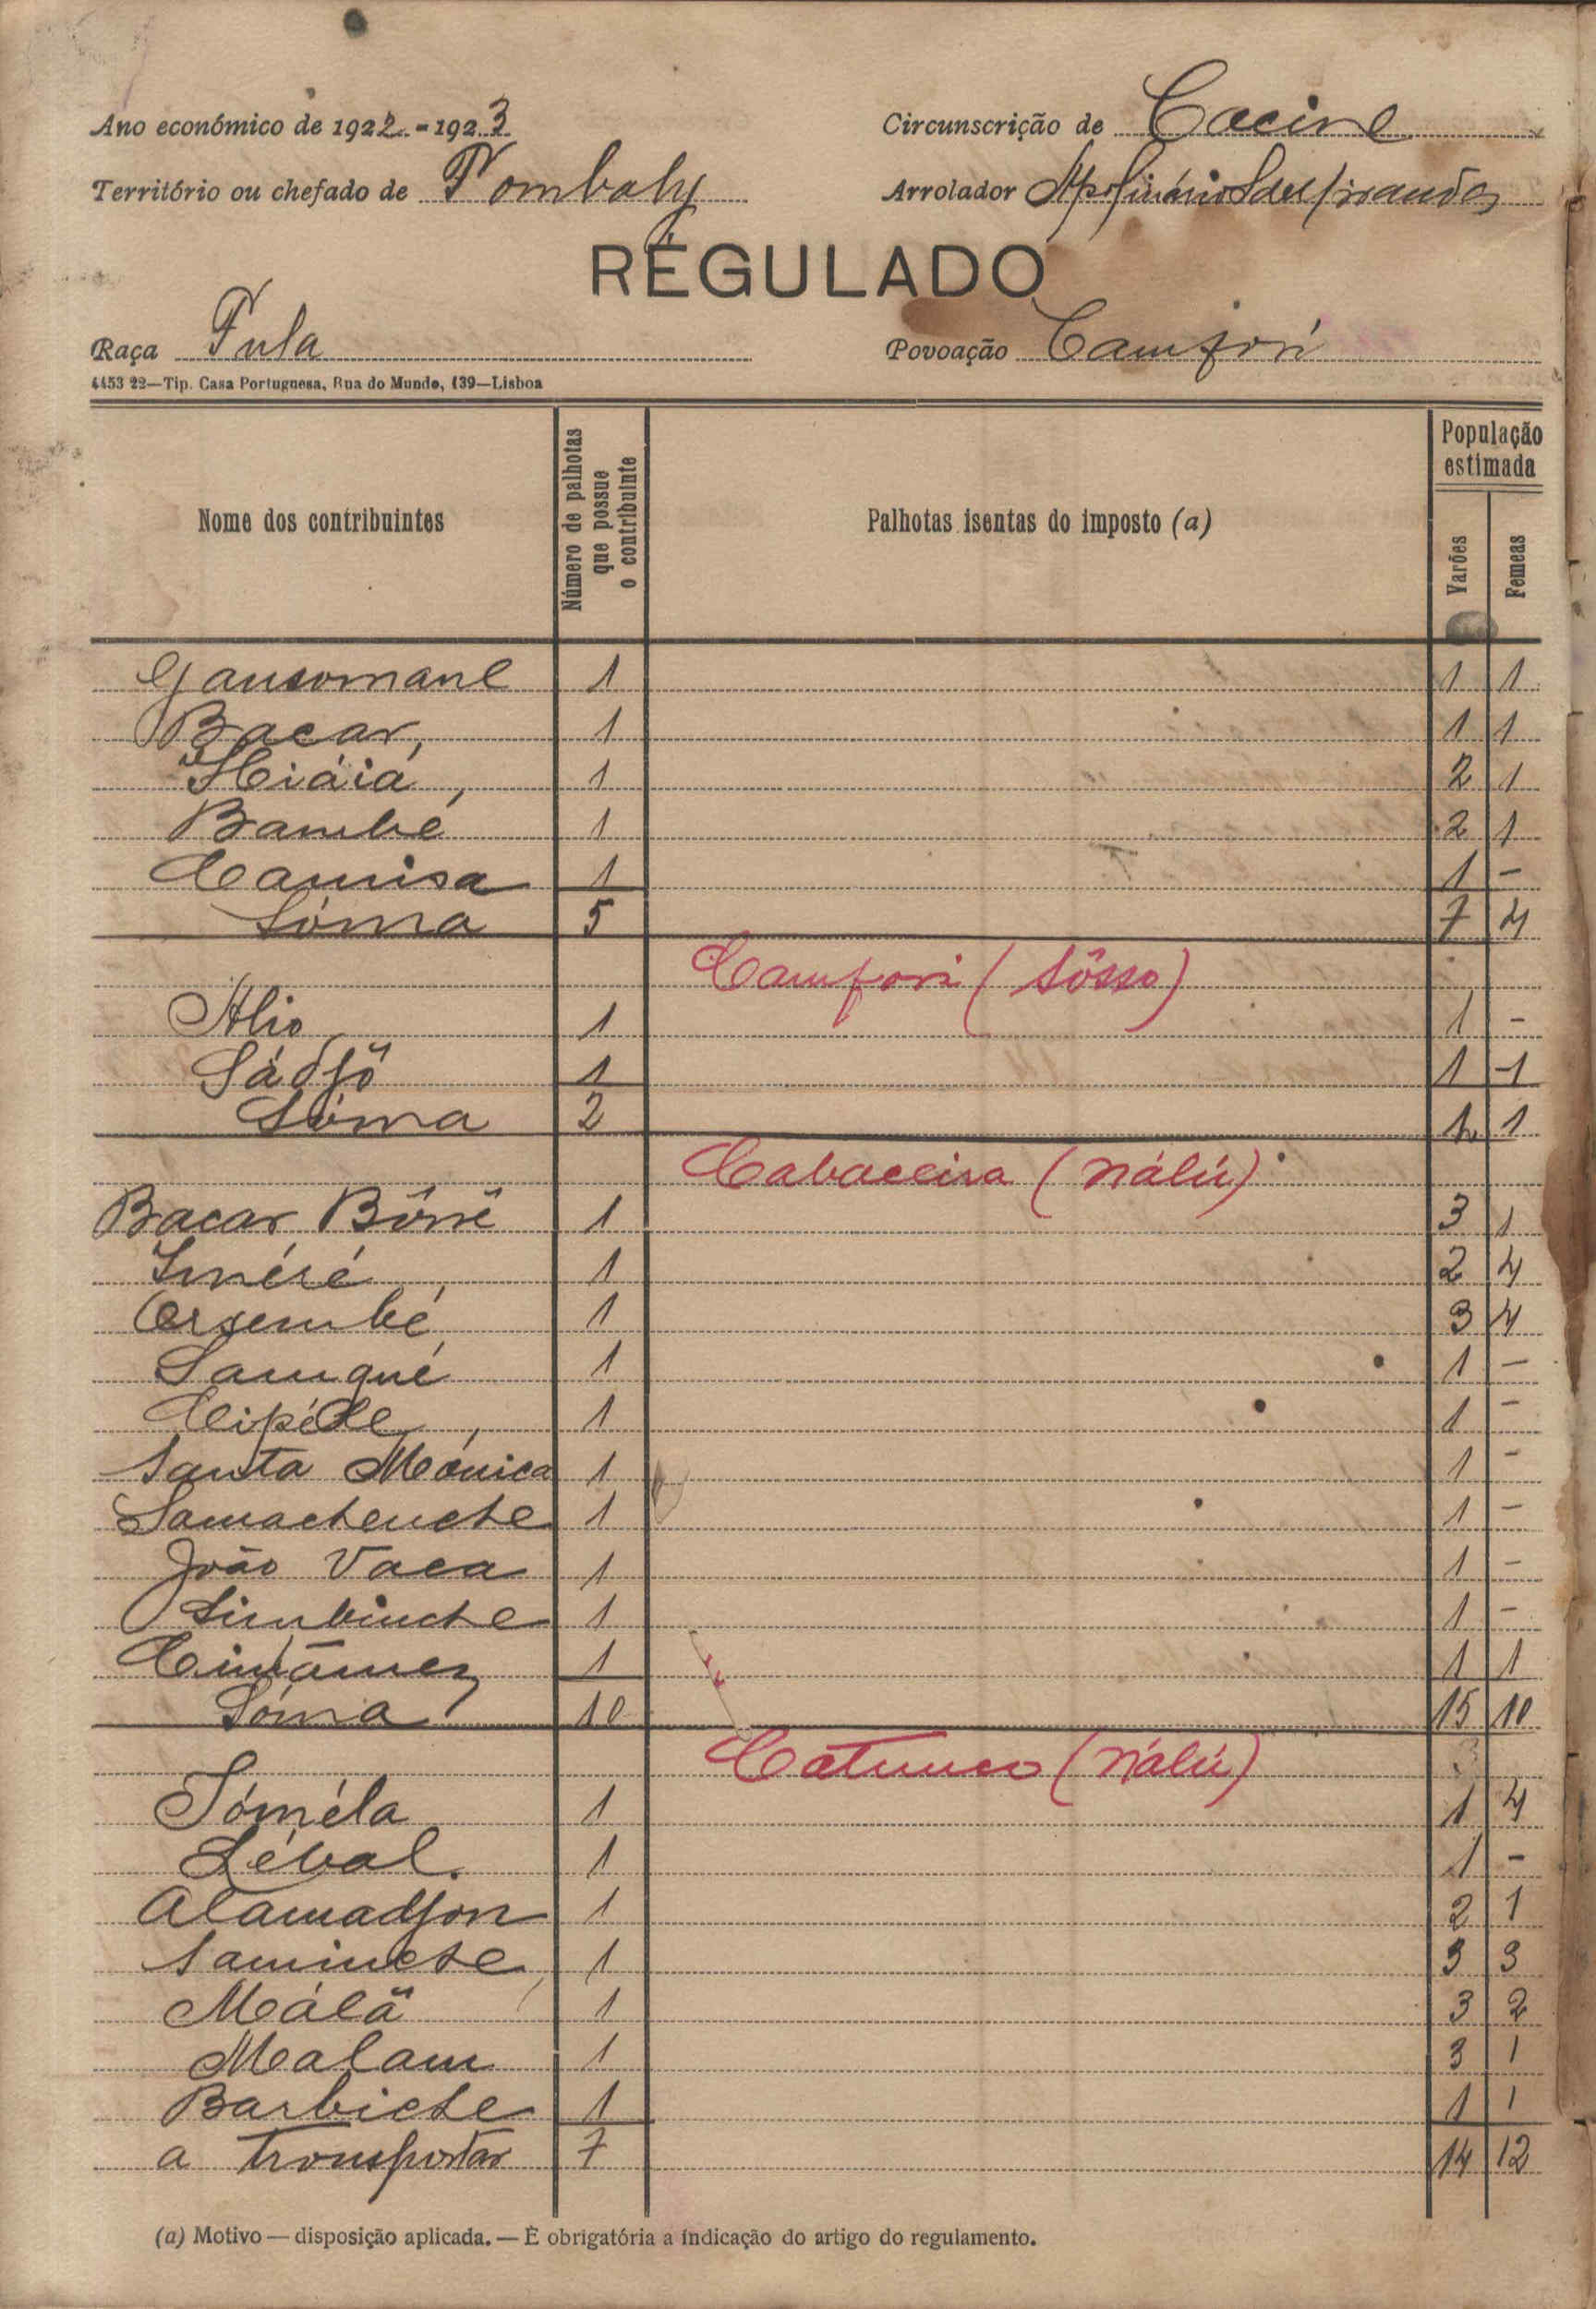 Ano económico de 1922-1923 Circunscrição de Cacine
Território ou chefado de Tombaly Arrolador
REGULADO
Raça Fula Povoação Camforí
4453 22—Tip. Casa Portuguesa, Rua do Mundo, 139—Lisboa
Nome dos contribuintes Número de palhotas que possue o contribuinte Palhotas isentas do imposto (a) População estimada Varões Femeas
Gansomane 1 1 1
Bacar 1 1 1
Hiáiá 1 2 1
Bambé 1 2 1
Camisa 1 1 -
Sóma 5 7 4
Camfori (Sôsso)
Alio 1 1 -
Sádjô 1 1 1
Sóma 2 2 1
Cabaceira (Nálú)
Bacar Bôrrê 1 3 1
1 2 4
1 3 4
Samgué 1 1 -
Cipéde 1 1 -
Santa Mónica 1 1 -
Samachenche 1 1 -
João Vaca 1 1 -
Simbinche 1 1 -
1 1 1
Sóma 10 15 10
Catunco (Nálú)
Tóméla 1 1 4
Léval 1 1 -
Alamadjon 1 2 1
1 3 3
Málã 1 3 2
Malam 1 3 1
Barbiche 1 1 1
a transportar 7 14 12
(a) Motivo — disposição aplicada. — É obrigatória a indicação do artigo do regulamento.